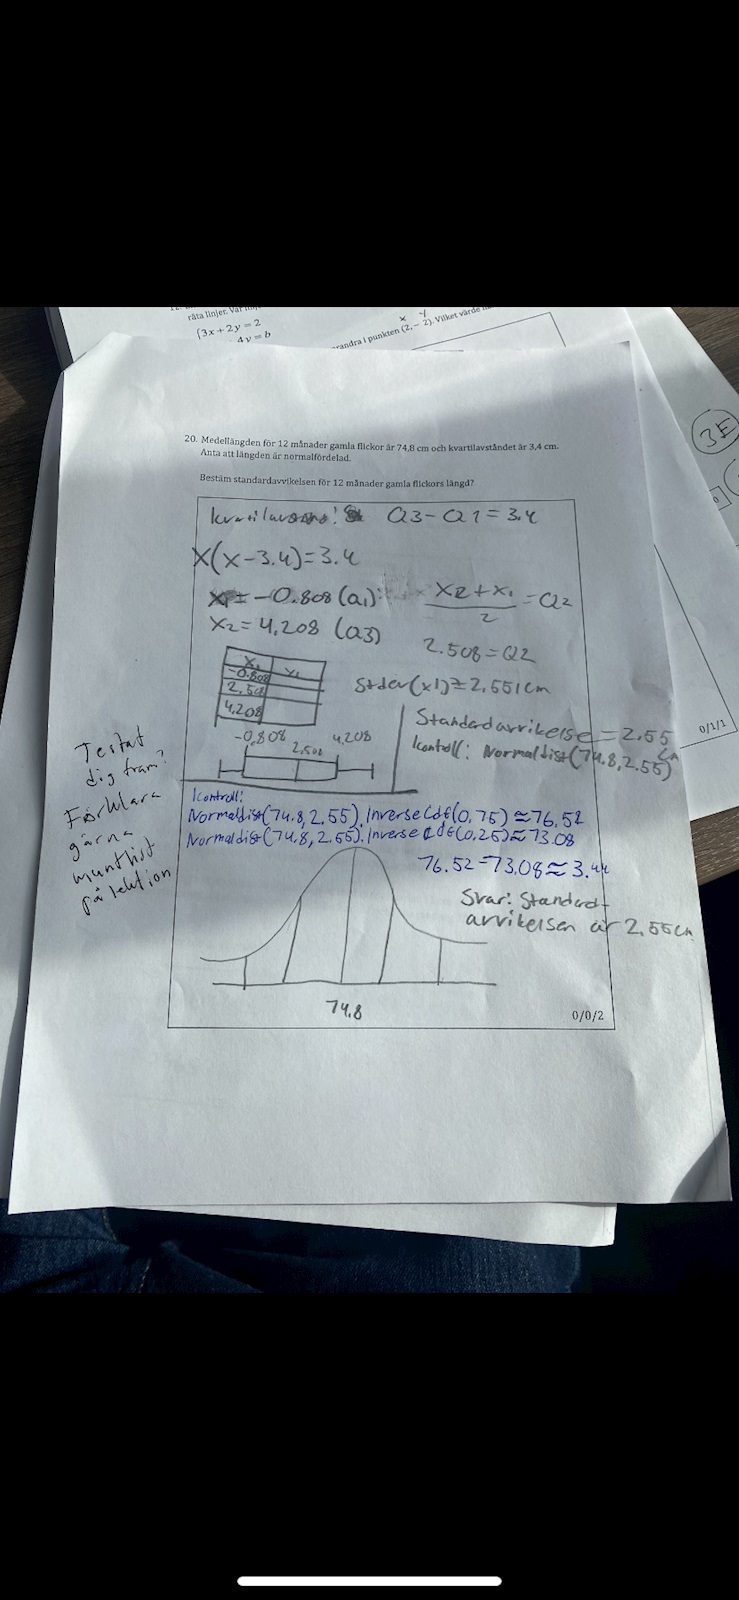 räta linjer. Var
3x+2y = 2
4y = b
x y
randra i punkten (2, − 2). Vilket värde
3E
20. Medellängden för 12 månader gamla flickor är 74,8 cm och kvartilavståndet är 3,4 cm.
Anta att längden är normalfördelad.
Bestäm standardavvikelsen för 12 månader gamla flickors längd?
Q3-Q1=3.4
X(x-3.4)=3.4
= -0.808 (Q1)
X2+X1
/2 = Q2
X2= 4,208 (Q3)
2.508=Q2
X1 Y1
-0.808
2.508
4.208
Stdev(x1)≈2,551cm
Standardavvikelse = 2.55 cm
kontroll: Normaldist(74.8,2.55)
0/1/1
-0,808 2,508 4,208
Testat
dig fram?
Förklara
gärna
muntligt
på lektion
kontroll:
Normaldist(74.8,2.55). Inverse Cdf(0.75)≈76.52
Normaldist(74.8,2.55). Inverse Cdf(0.25)≈73.08
76.52-73.08≈3.44
Svar: Standard-
avvikelsen är 2,55cm
74.8
0/0/2